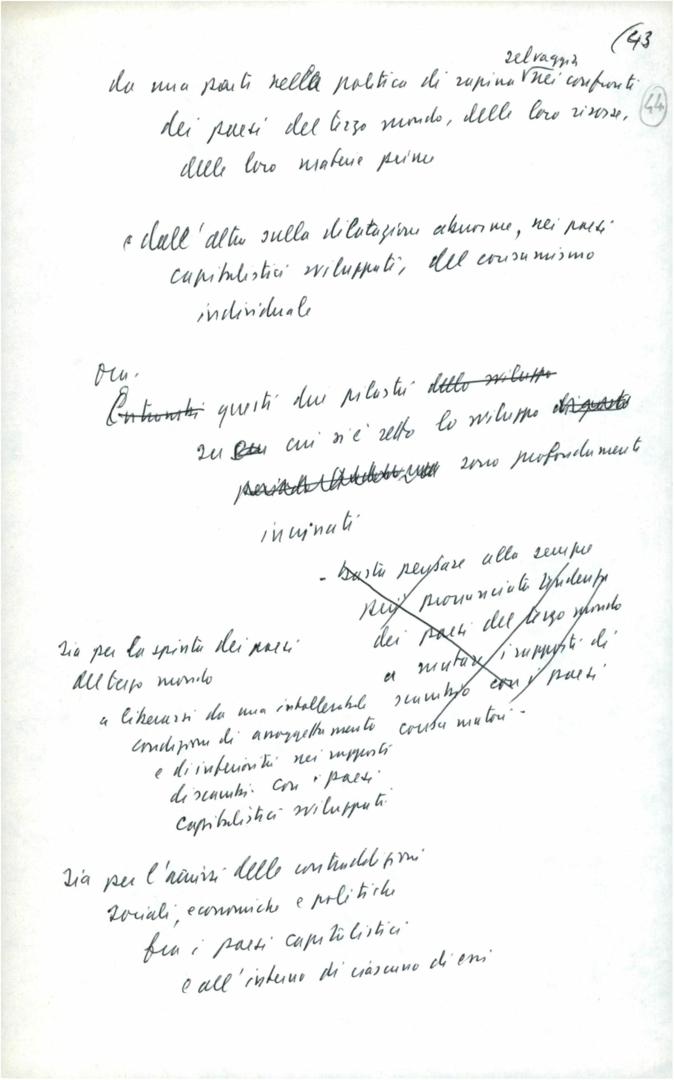 (43
44
selvaggia
da una parte nella politica di rapina nei confronti
dei paesi del terzo mondo, delle loro risorse,
delle loro materie prime
e dall'altra sulla dilatazione abnorme, nei paesi
capitalistici sviluppati, del consumismo
individuale
Ora.
Entrambi questi due pilastri dello sviluppo
su cui si è retto lo sviluppo di questo
sono profondamente
incrinati
- basta pensare alla sempre
più pronunciata tendenza
dei paesi del terzo mondo
a mutare i rapporti di
scambio con i paesi
consumatori -
sia per la spinta dei paesi
del terzo mondo
a liberarsi da una intollerabile
condizione di assoggettamento
e di inferiorità nei rapporti
di scambi con i paesi
capitalistici sviluppati
sia per l'acuirsi delle contraddizioni
sociali, economiche e politiche
fra i paesi capitalistici
e all'interno di ciascuno di essi